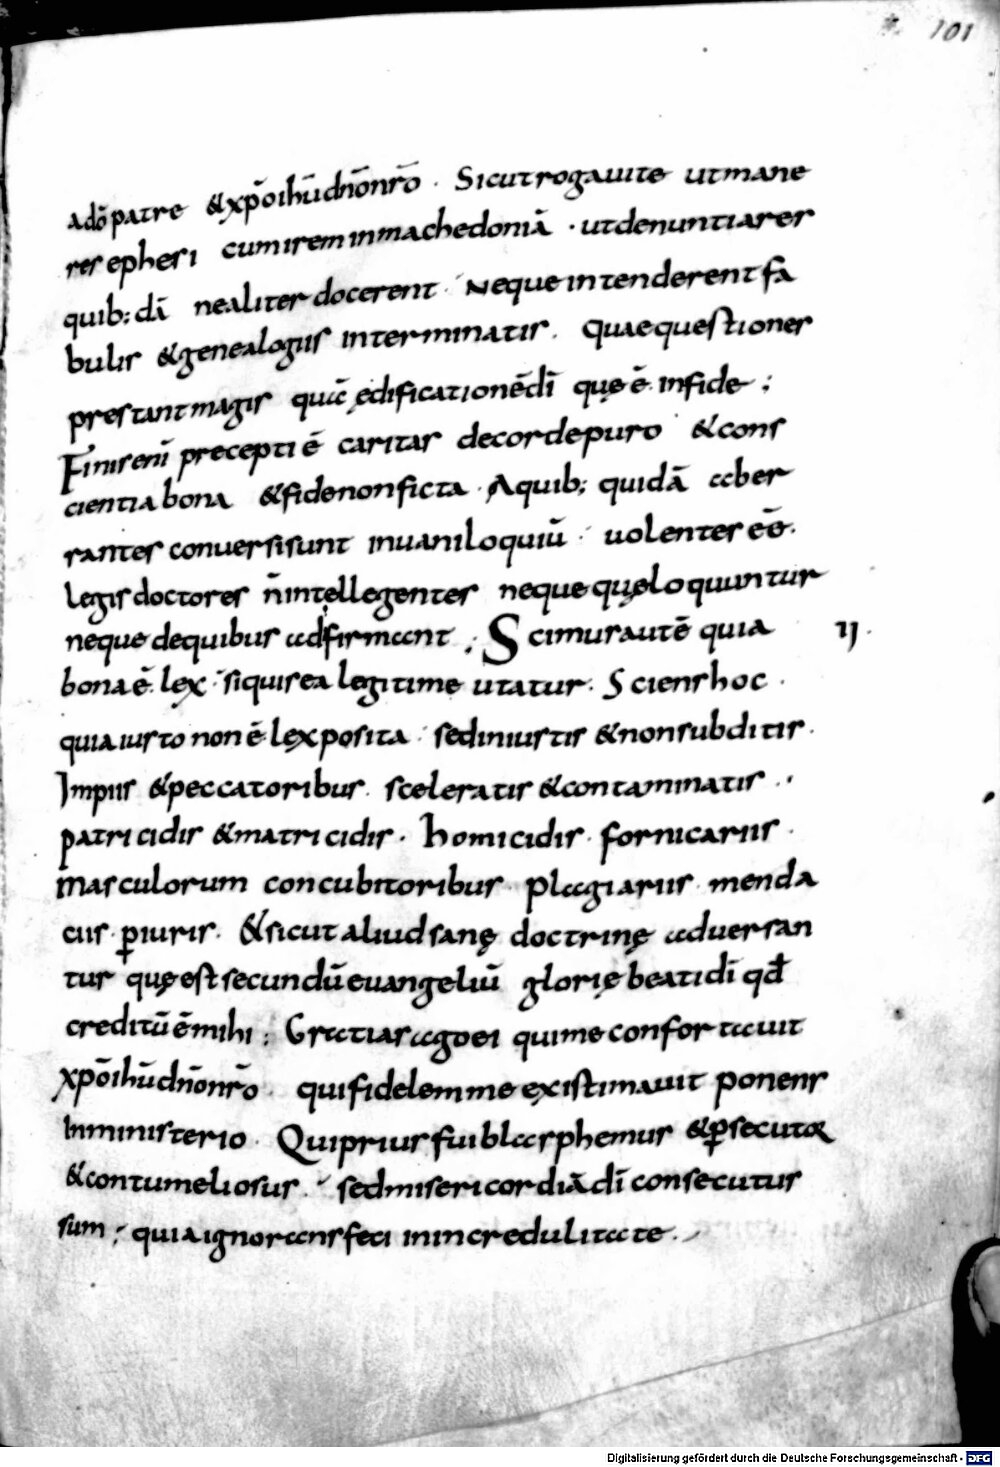 101
ado patre & xpo ihu dno nro. Sicut rogaui te ut mane
res ephesi cum irem in machedoniā. ut denuntiares
quib; dā ne aliter docerent. Neque intenderent fa
bulis & genealogiis interminatis. Quae questiones
prestant magis quā ędificationē dī quę ē. in fide;
Finis eni precepti ē caritas de corde puro & cons
cientia bona & fide non ficta. A quib; quidā aber
rantes conuersi sunt in uaniloquiū. uolentes ēē.
legis doctores n̄ intellegentes neque quę loquuntur
neque de quibus adfirmant; Scimus autē quia
IJ.
bona ē. lex. si quis ea legitime utatur. Sciens hoc.
quia iusto non ē lex posita. sed iniustis & non subditis.
Impiis & peccatoribus. sceleratis & contaminatis.
patricidis & matricidis. homicidis. fornicariis.
masculorum concubitoribus. plagiariis. menda
cis. ꝑiuris. & sicut aliud sanę doctrinę aduersan
tur quę est secundū euangeliū glorię beati dī qđ
creditū ē mihi; Gratias ago ei qui me confortauit
xpo ihu dno nro. qui fidelem me existimauit ponens
in ministerio. Qui prius fui blasphemus & ꝑsecutor
& contumeliosus. sed misericordiā dī consecutus
sum; quia ignorans feci in incredulitate.
Digitalisierung gefördert durch die Deutsche Forschungsgemeinschaft - DFG